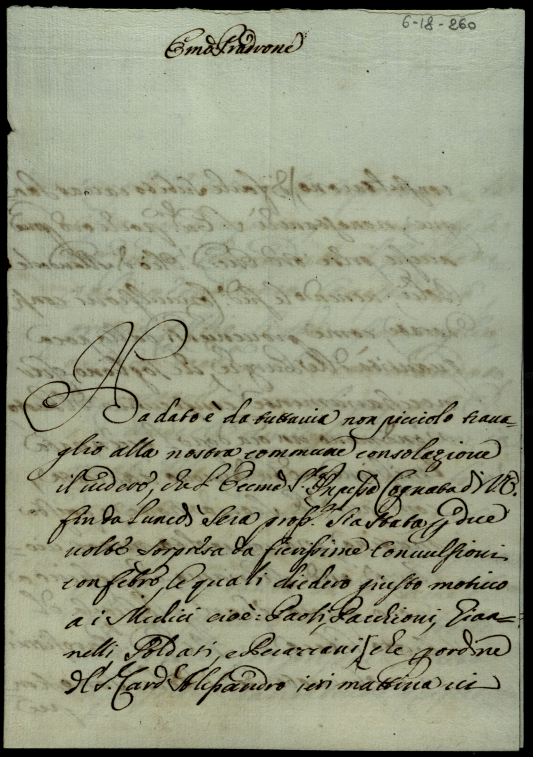 6-18-260
Emō Padrone
Ha dato e da tuttavia non picciolo trava-
glio alla nostra commune consolazione
il vedere, che l'Eccmā Sra Pnpessa Cognata di V.E.
fin da Lunedì sera pross. sia stata p due
volte sorpresa da fierissime Convulsioni
con febre, le quali diedero giusto motivo
a i Medici cioè: Paoli, Pacchioni, Gian=
nelli Soldati, e [che p ordine
del Sr. Card Alesandro ieri mattina vi